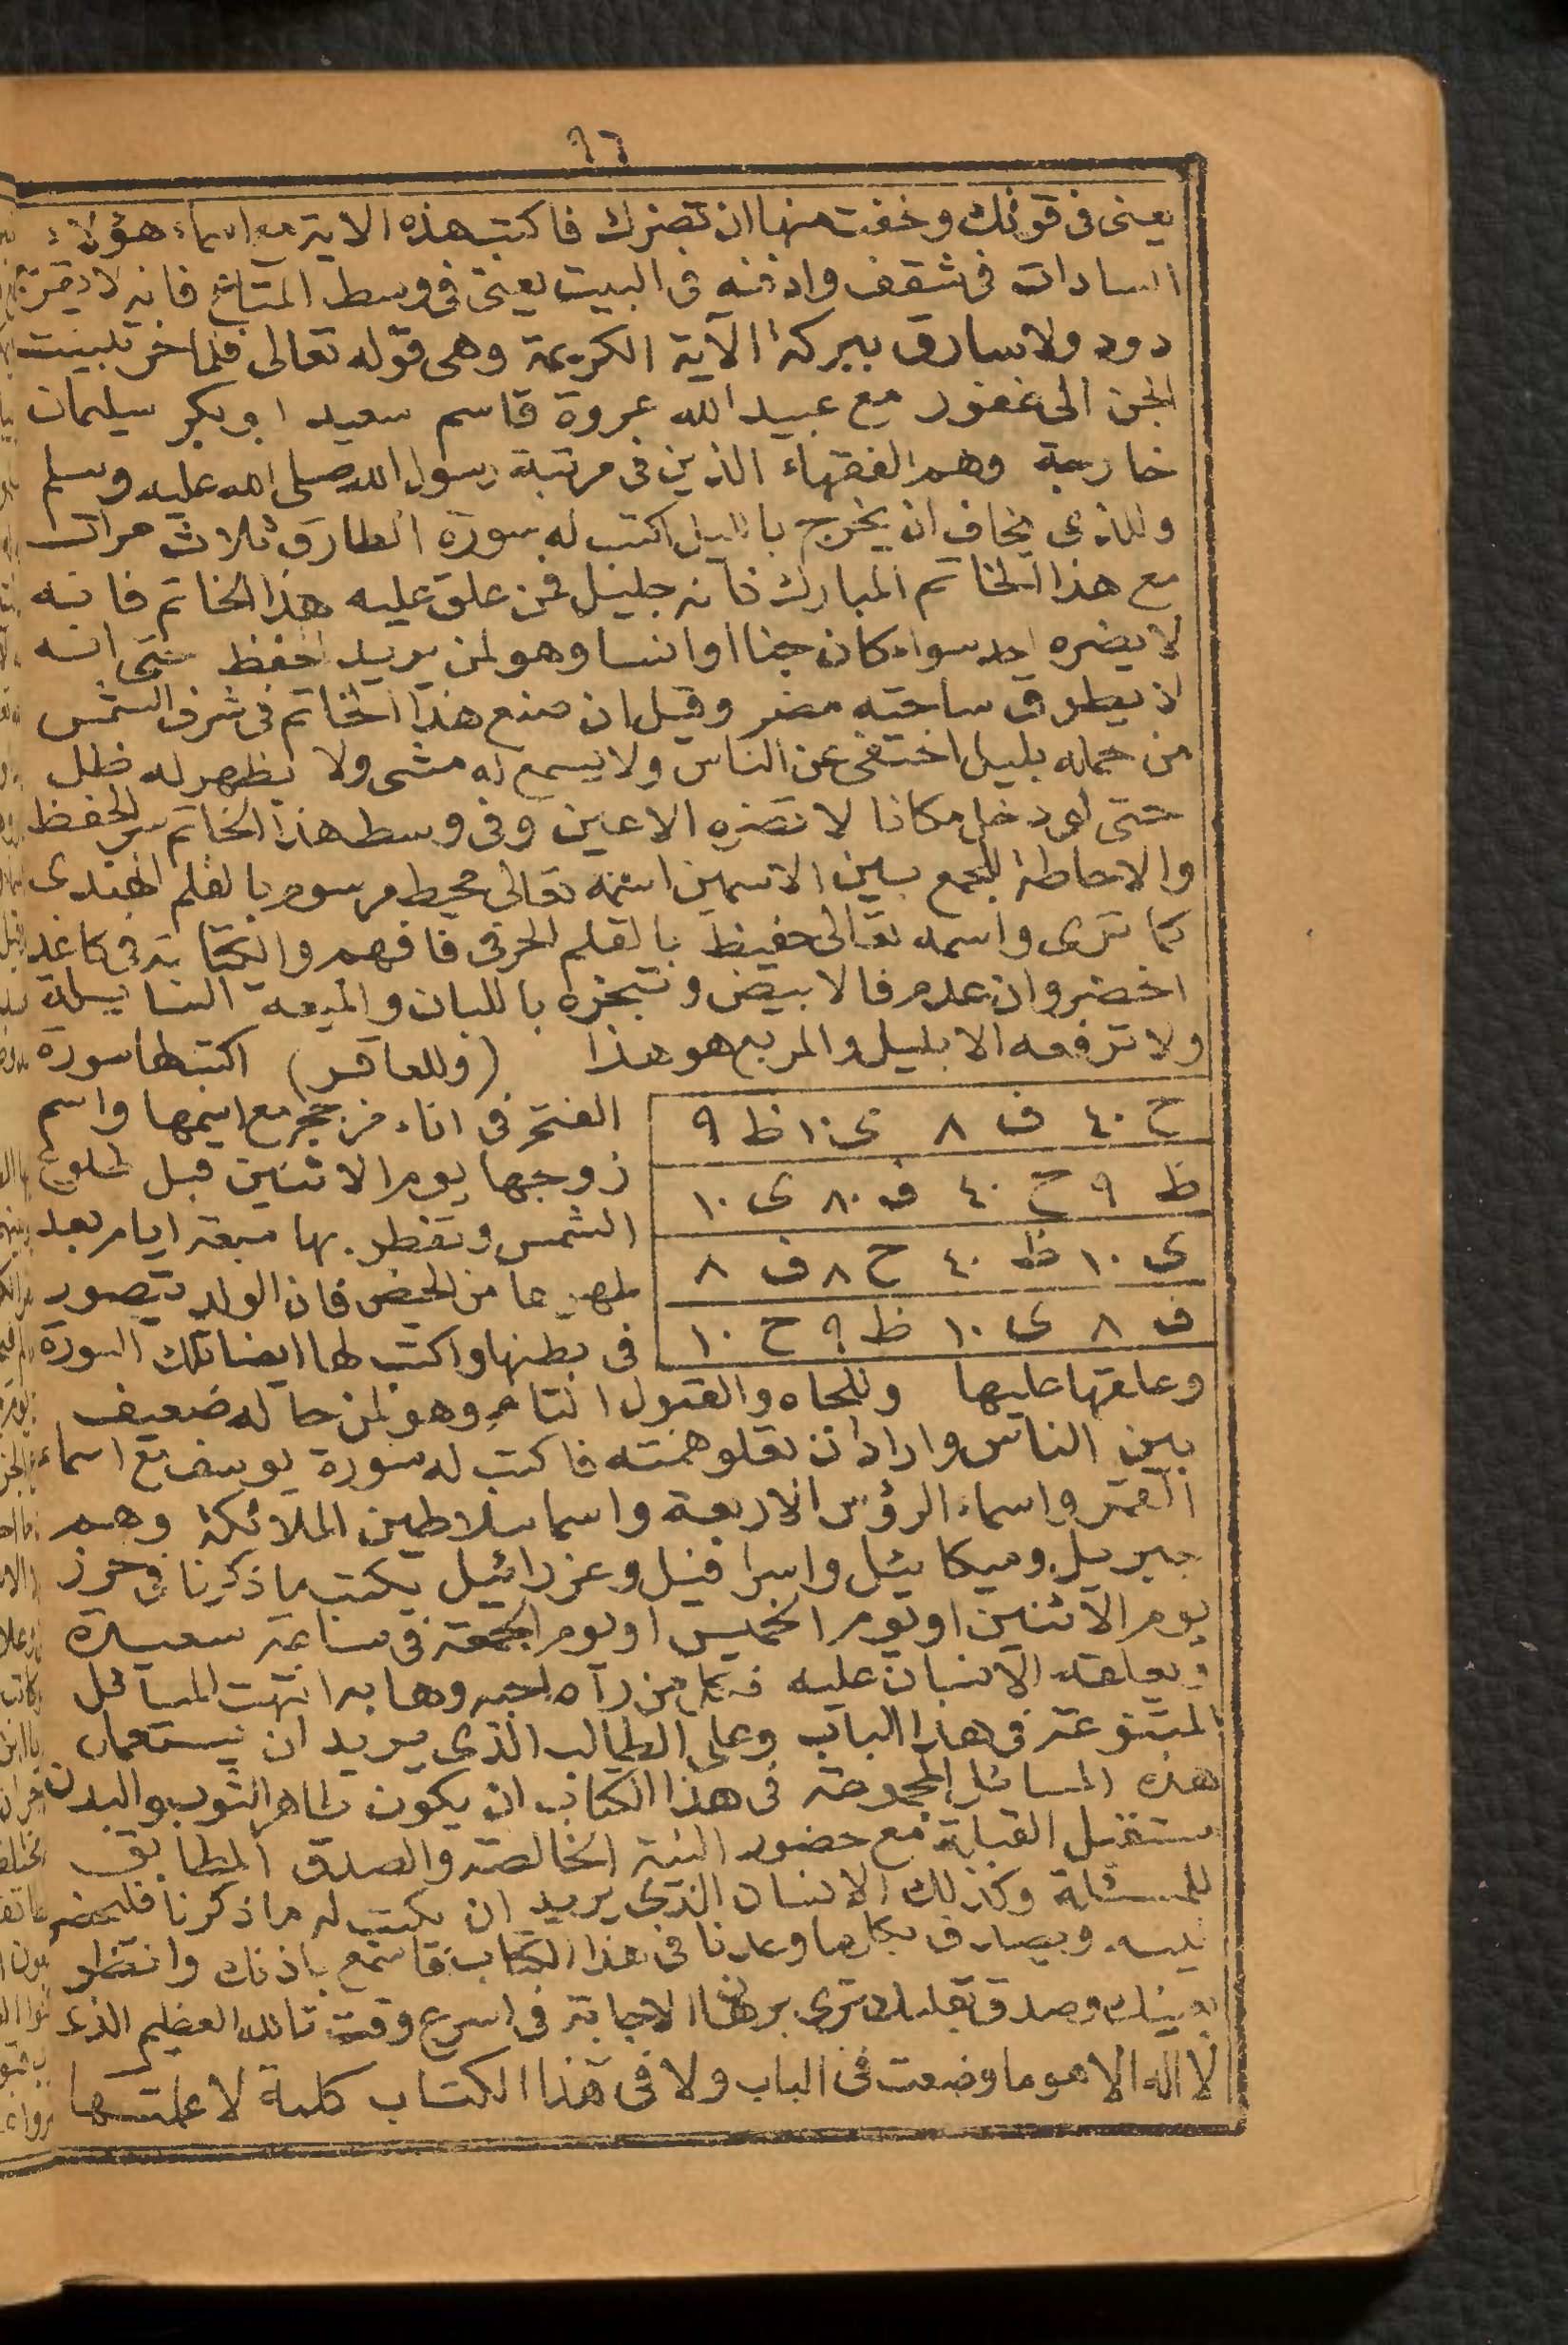 ٩٦
يعنى فى قوتك وخفت منها ان تضرك فاكتب هذه الاية مع اسماء هؤلاء
السادات فى شقف وادفنه فى البيت يعنى فى وسط المتاع فانه لا يقربه
دود ولا سارق ببركة الآية الكريمة وهى قوله تعالى فلما خر تبينت
الجن الى غفور مع عبيد الله عروة قاسم سعيد ابو بكر سليمان
خارجة وهم الفقهاء الذين فى مرتبة رسول الله صلى الله عليه وسلم
وللذى يخاف ان يخرج بالليل اكتب له سورة الطارق ثلاث مرات
مع هذا الخاتم المبارك فانه جليل فمن علق عليه هذا الخاتم فانه
لا يضره احد سواء كان جنا او انسا وهو لمن يريد الحفظ حتى انه
لا يطرق ساحته مضر وقيل ان صنع هذا الخاتم فى شرف الشمس
من حمله بليل اختفى عن الناس ولا يسمع له مشى ولا يظهر له ظل
حتى لو دخل مكانا لا تضره الاعين وفى وسط هذا الخاتم سر الحفظ
والاحاطة للجمع بين الاسمين اسمه تعالى محيط مرسوم بالقلم الهندى
كما ترى واسمه تعالى حفيظ بالقلم الحرفى فافهم والكتابة فى كاغد
اخضر وان عدم فالابيض وتبخره باللبان والميعه السايلة
ولا ترفعه الا بليل والمربع هو هذا (وللعاقر) اكتب لها سورة
ح ٤٠ ف ٨ ى ١٠ ظ ٩
ظ ٩ ح ٤٠ ف ٨٠ ى ١٠
ى ١٠ ظ ٤٠ ح ٨ ف ٨
ف ٨ ى ١٠ ظ ٩ ح ١٠
الفتح فى اناء من حجر مع اسمها واسم
زوجها يوم الاثنين قبل طلوع
الشمس وتفطر بها سبعة ايام بعد
طهرها من الحيض فان الولد يتصور
فى بطنها واكتب لها ايضا تلك السورة
وعلقها عليها وللجاه والقبول التام وهو لمن حاله ضعيف
بين الناس واراد ان تعلو همته فاكتب له سورة يوسف مع اسماء
القمر واسماء الرؤس الاربعة واسما سلاطين الملائكة وهم
جبريل وميكائيل واسرافيل وعزرائيل يكتب ما ذكرنا فى حرز
يوم الاثنين او يوم الخميس او يوم الجمعة فى ساعة سعيدة
ويعلقه الانسان عليه فكل من رآه احبه وهابه انتهت المسائل
المتنوعة فى هذا الباب وعلى الطالب الذى يريد ان يستعمل
هذه المسائل المجموعة فى هذا الكتاب ان يكون طاهر الثوب والبدن
مستقبل القبلة مع حضور النية الخالصة والصدق المطابق
للمسئلة وكذلك الانسان الذى يريد ان يكتب له ما ذكرنا فليحضر
نيته ويصدق بكل ما وعدنا فى هذا الكتاب فاسمع باذنك وانظر
بعينك وصدق بقلبك ترى برهان الاجابة فى اسرع وقت تالله العظيم الذى
لا اله الا هو ما وضعت فى الباب ولا فى هذا الكتاب كلمة لا علمتها